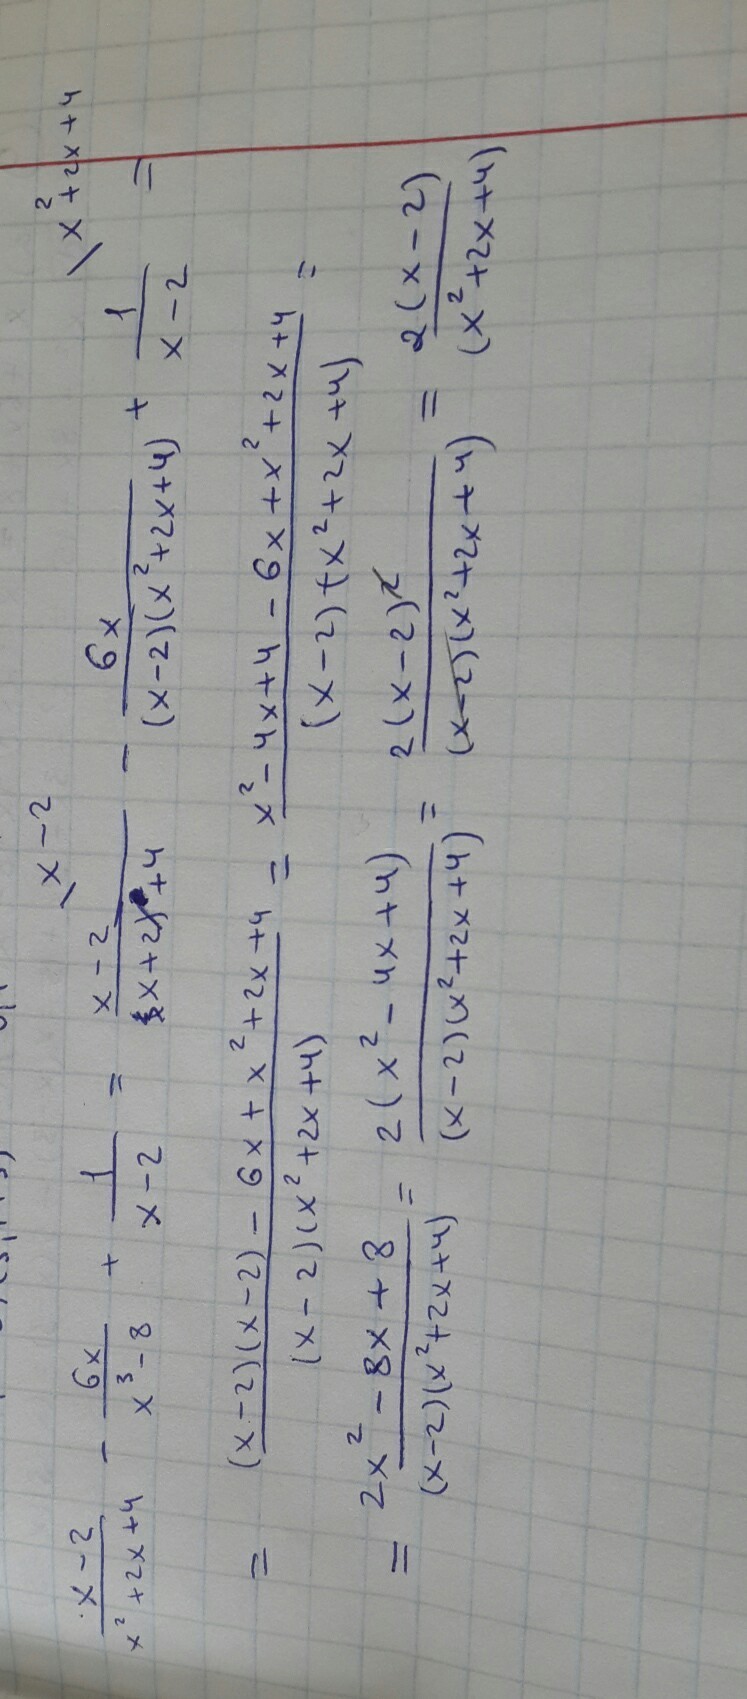 \x-2 \x²+2x+4
x-2/x²+2x+4 - 6x/x³-8 + 1/x-2 = x-2/x+2x+4 - 6x/(x-2)(x²+2x+4) + 1/x-2 =
= (x-2)(x-2)-6x+x²+2x+4/(x-2)(x²+2x+4) = x²-4x+4-6x+x²+2x+4/(x-2)(x²+2x+4) =
= 2x²-8x+8/(x-2)(x²+2x+4) = 2(x²-4x+4)/(x-2)(x²+2x+4) = 2(x-2)²/(x-2)(x²+2x+4) = 2(x-2)/(x²+2x+4)